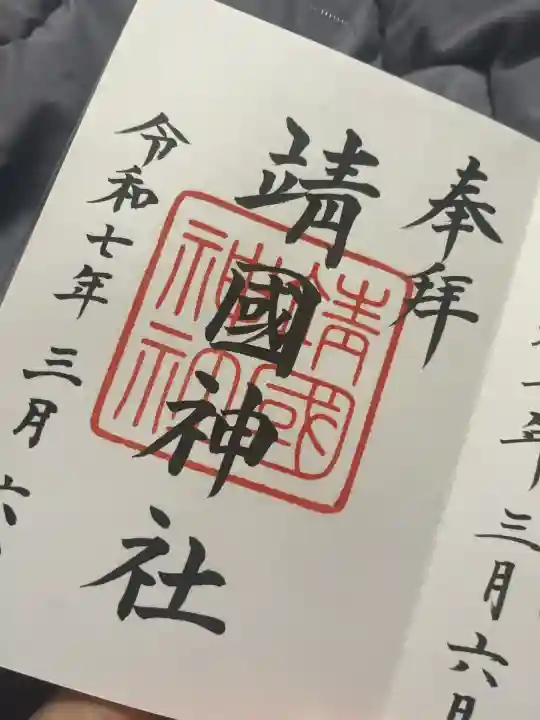 年三月六日
奉拝
靖國神社
靖國神社
令和七年三月六